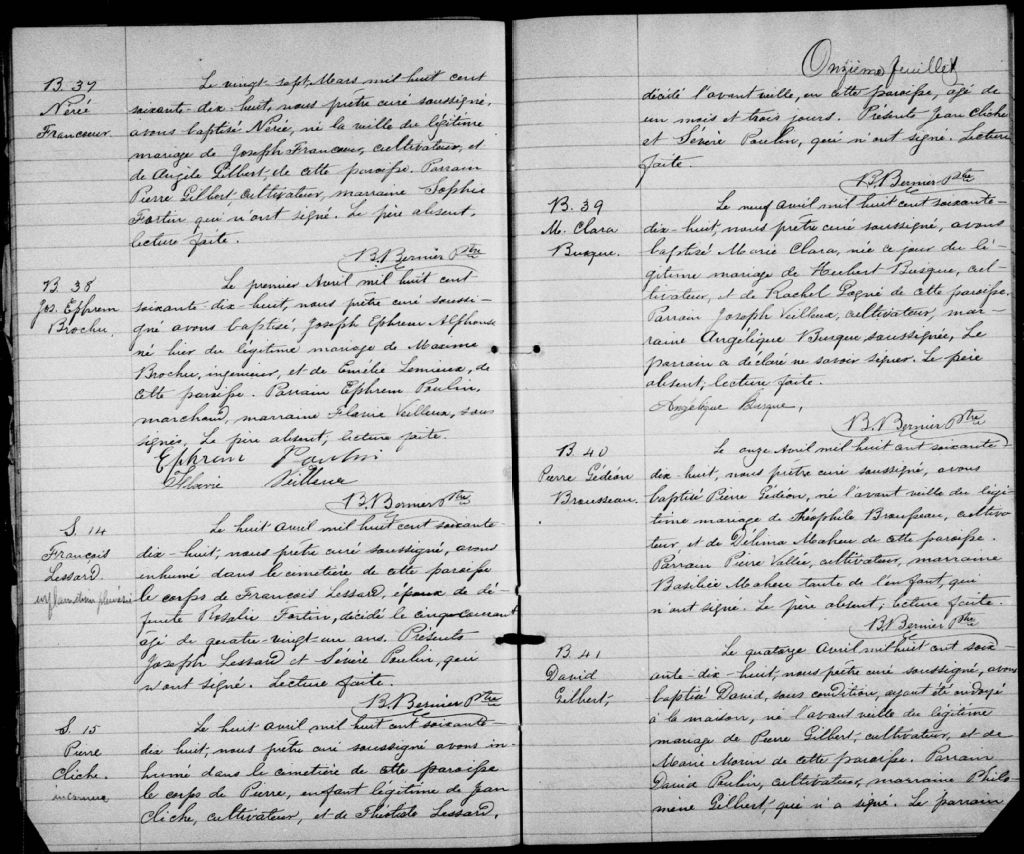 B. 37
Nérée
Francoeur
Le vingt sept Mars mil huit cent
soixante-dix-huit, nous prêtre curé soussigné,
avons baptisé Nérée, né la veille du légitime
mariage de Joseph Francoeur, cultivateur, et
de Angèle Gilbert, de cette paroisse. Parrain
Pierre Gilbert, cultivateur, marraine Sophie
Fortin qui n'ont signé. Le père absent,
lecture faite.
B. Bernier Ptre
B. 38
Jos. Ephrem
Brochu.
Le premier Avril mil huit cent
soixante-dix-huit, nous prêtre curé soussi-
gné avons baptisé, Joseph Ephrem Alphonse
né hier du légitime mariage de Maxime
Brochu, ingénieur, et de Emélie Lemieux, de
cette paroisse. Parrain Ephrem Poulin,
marchand, marraine Flavie Veilleux, sous
signés. Le père absent, lecture faite.
Ephrem Poulin
Flavie Veilleux
B. Bernier Ptre
S. 14
François
Lessard.
Le huit avril mil huit cent soixante-
dix-huit, nous prêtre curé soussigné, avons
inhumé dans le cimetière de cette paroisse
le corps de François Lessard, époux de dé-
funte Rosalie Fortin, décédé le cinq courant
âgé de quatre-vingt-un ans. Présents
Joseph Lessard et Sévère Poulin, qui
n'ont signé. Lecture faite.
B. Bernier Ptre
S. 15
Pierre
Cliche.
inconnue
Le huit avril mil huit cent soixante-
dix huit, nous prêtre curé soussigné avons in-
humé dans le cimetière de cette paroisse
le corps de Pierre, enfant légitime de Jean
Cliche, cultivateur, et de Théotiste Lessard,
Onzième feuillet
décédé l'avant veille, en cette paroisse, âgé de
un mois et trois jours. Présents Jean Cliche
et Sévère Poulin, qui n'ont signé. Lecture
faite.
B. Bernier Ptre
B. 39
M. Clara
Busque.
Le neuf avril mil huit cent soixante-
dix-huit, nous prêtre curé soussigné, avons
baptisé Marie Clara, née ce jour du lé-
gitime mariage de Hubert Busque, cul-
tivateur, et de Rachel Gagné de cette paroisse.
Parrain Joseph Veilleux, cultivateur, mar-
raine Angélique Busque, soussignée, Le
parrain a déclaré ne savoir signer. Le père
absent, lecture faite.
Angélique Busque,
B. Bernier Ptre
B. 40
Pierre Gédéon
Brousseau.
Le onze Avril mil huit cent soixante-
dix-huit, nous prêtre curé soussigné, avons
baptisé Pierre Gédéon, né l'avant veille du légi-
time mariage de Théophile Brousseau, cultiva-
teur, et de Délima Maheu de cette paroisse.
Parrain Pierre Vallée, cultivateur, marraine
Basilice Maheu tante de l'enfant, qui
n'ont signé. Le père absent, lecture faite.
B. Bernier Ptre
B. 41
David
Gilbert,
Le quatorze Avril mil huit cent soix-
ante-dix-huit, nous prêtre curé soussigné, avons
baptisé David, sous condition, ayant été ondoyé
à la maison, né l'avant veille du légitime
mariage de Pierre Gilbert, cultivateur, et de
Marie Morin de cette paroisse. Parrain
David Poulin, cultivateur, marraine Philo-
mène Gilbert, qui n'a signé. Le parrain